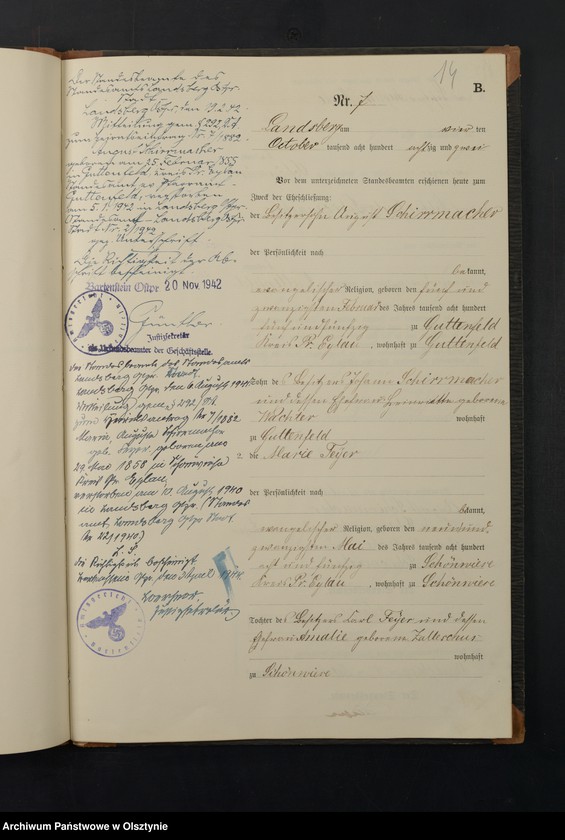 14
B.
Nr. 7
Landsberg am vier ten
October tausend acht hundert achtzig und zwei
Vor dem unterzeichneten Standesbeamten erschienen heute zum
Zweck der Eheschließung:
der Besitzersohn August Schirrmacher
der Persönlichkeit nach
be kannt,
evangelischer Religion, geboren den fünf und
zwanzigsten Februar des Jahres tausend acht hundert
fünf und fünfzig zu Guttenfeld
Kreis Pr. Eylau, wohnhaft zu Guttenfeld
Sohn des Besitzers Johann Schirrmacher
und dessen Ehefrau geborene
wohnhaft
zu Guttenfeld
2. die Marie Feyer
der Persönlichkeit nach
bekannt,
evangelischer Religion, geboren den neunund
zwanzigsten Mai des Jahres tausend acht hundert
acht und fünfzig zu Schönwiese
Kreis Pr. Eylau, wohnhaft zu Schönwiese
Tochter des Besitzers Carl Feyer und dessen
Ehefrau Amalie geborene
wohnhaft
zu Schönwiese
Der Standesbeamte des
Standesamts Landsberg Ostpr.
Stadt
Landsberg Ostpr., den
Mitteilung gem.
zum Heiratseintrag Nr. 7/1882
August Schirrmacher
geboren am 25. Februar 1855
in Guttenfeld, Kreis Pr. Eylau
Guttenfeld, verstorben
am 5.1.1942 in Landsberg Ostpr.
Standesamt Landsberg Ostpr.
Stadt Nr. 2/1942
gez. Unterschrift.
Die Richtigkeit der Ab-
schrift bescheinigt
Bartenstein Ostpr 20 Nov. 1942
Günther
Justizsekretär
als Urkundsbeamter der Geschäftsstelle.
Der Standesbeamte des Standesamts
Landsberg Ostpr. Stadt.
Landsberg Ostpr. den 6. August 1940
Mitteilung gem.
zum Heiratseintrag Nr 7/1882
Marie, Auguste Schirrmacher
geb. Feyer, geboren am
29. Mai 1858 in Schönwiese
Kreis Pr. Eylau,
verstorben am August 1940
in Landsberg Ostpr. (Standes
amt Landsberg Ostpr. Stadt
Nr 22/1940)
L. S.
die Richtigkeit bescheinigt
Bartenstein Ostpr. den
Justizsekretär
Archiwum Państwowe w Olsztynie